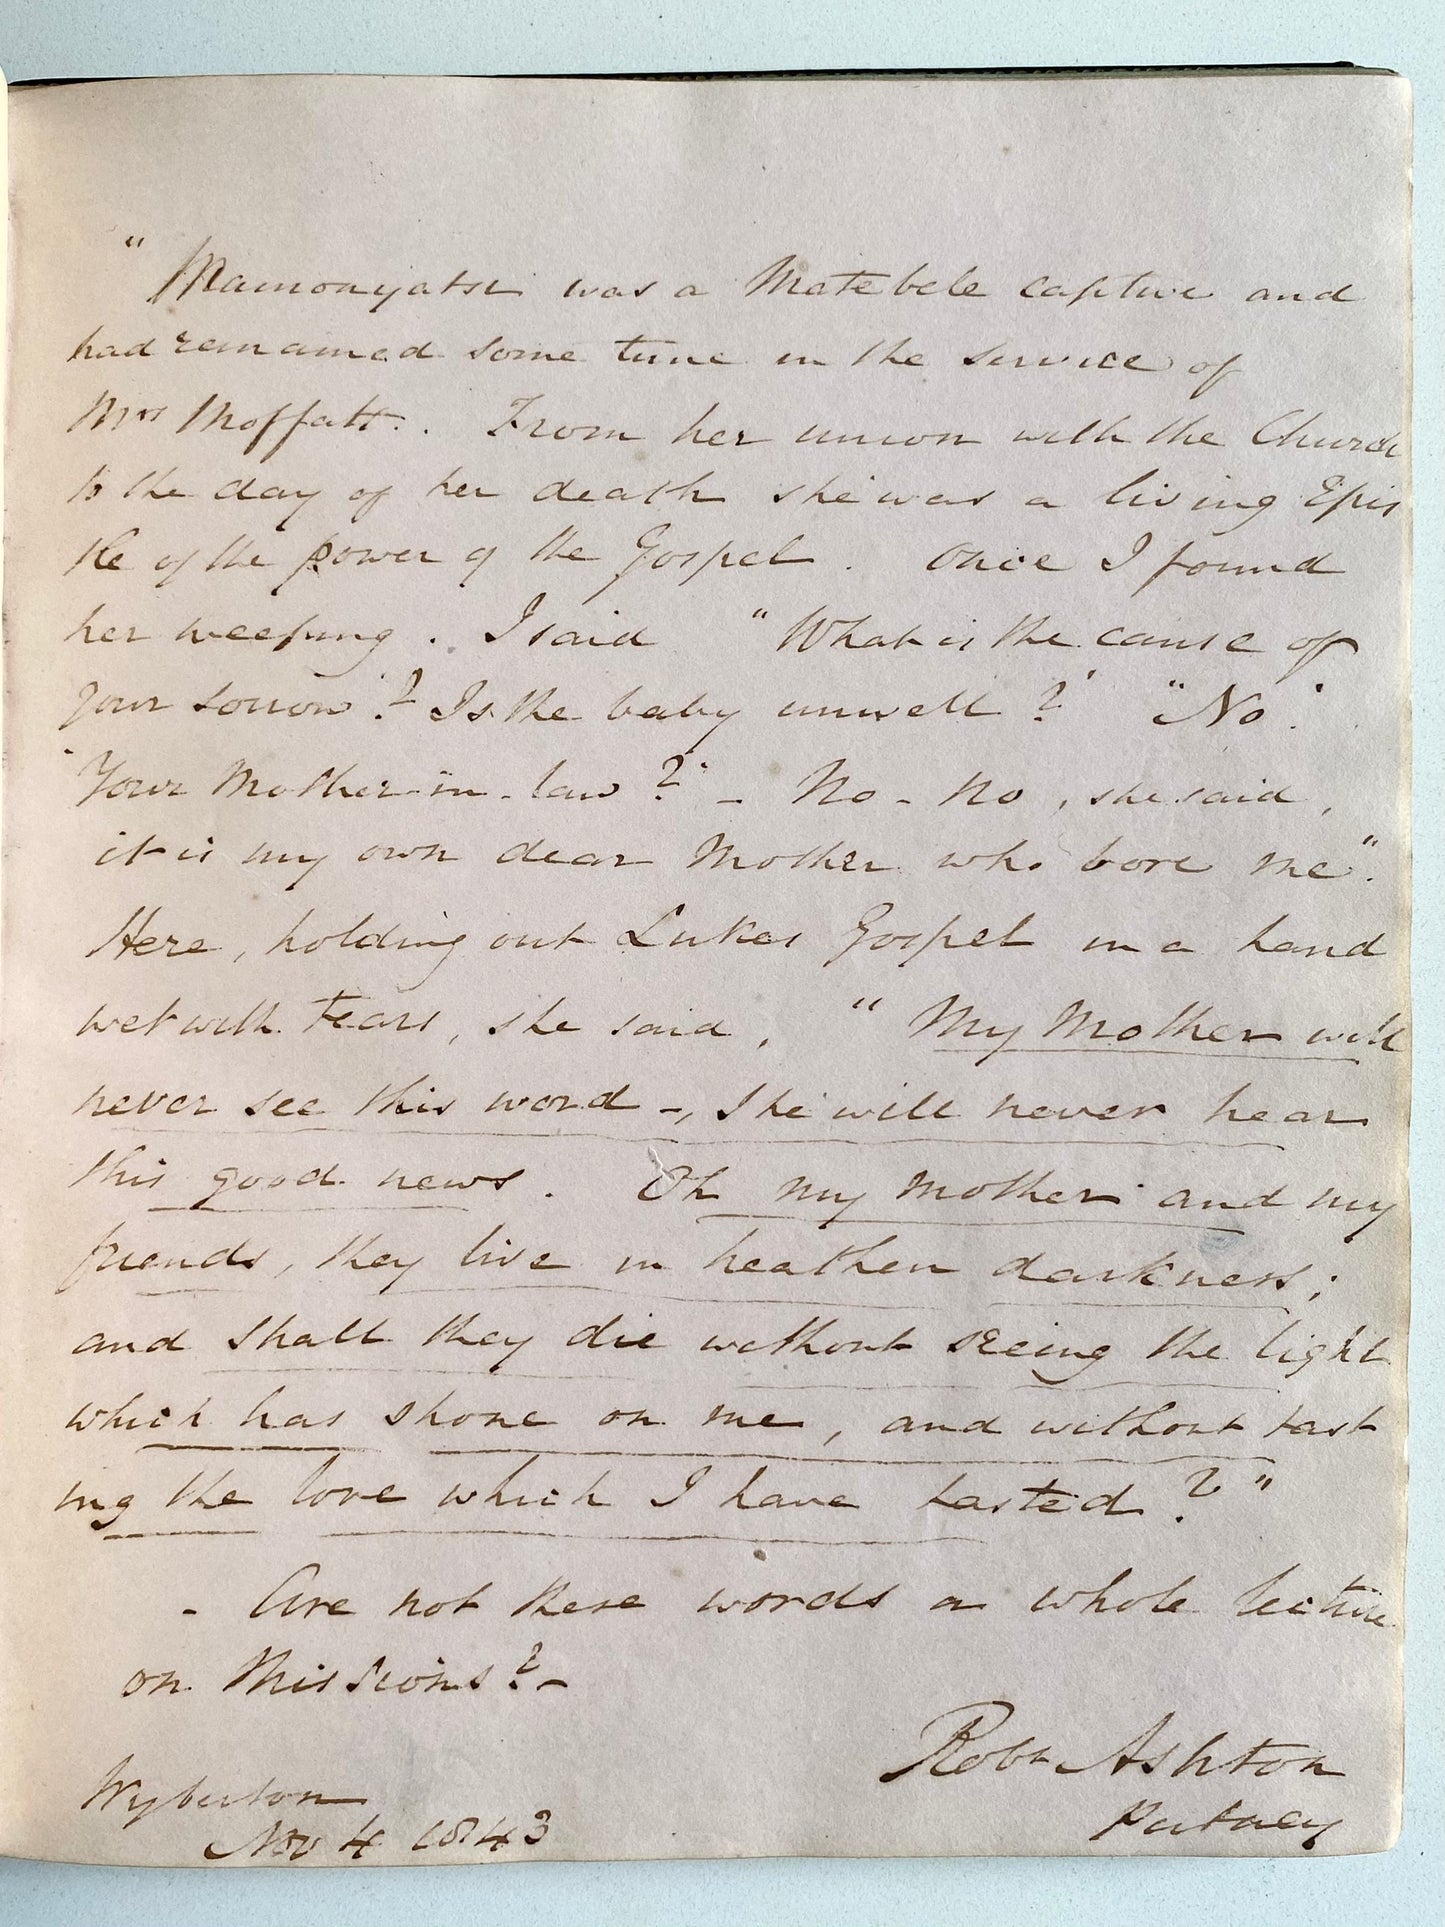 "Mamonyatsi was a Matebele captive and
had remained some time in the service of
Mrs Moffatt. From her union with the Church
to the day of her death she was a living Epis
tle of the power of the Gospel. Once I found
her weeping. I said "What is the cause of
your sorrow? Is the baby unwell?" "No".
"Your Mother-in-law?" - No - no, she said,
it is my own dear Mother who bore me".
Here, holding out Lukes Gospel in a hand
wet with tears, she said, "My Mother will
never see this word -, she will never hear
this good news. Oh my mother and my
friends, they live in heathen darkness;
and shall they die without seeing the light
which has shone on me, and without tast
ing the love which I have tasted?"
- Are not these words a whole lecture
on Missions? -
Robt Ashton
Putney
Wyberton
Nov 4 1843